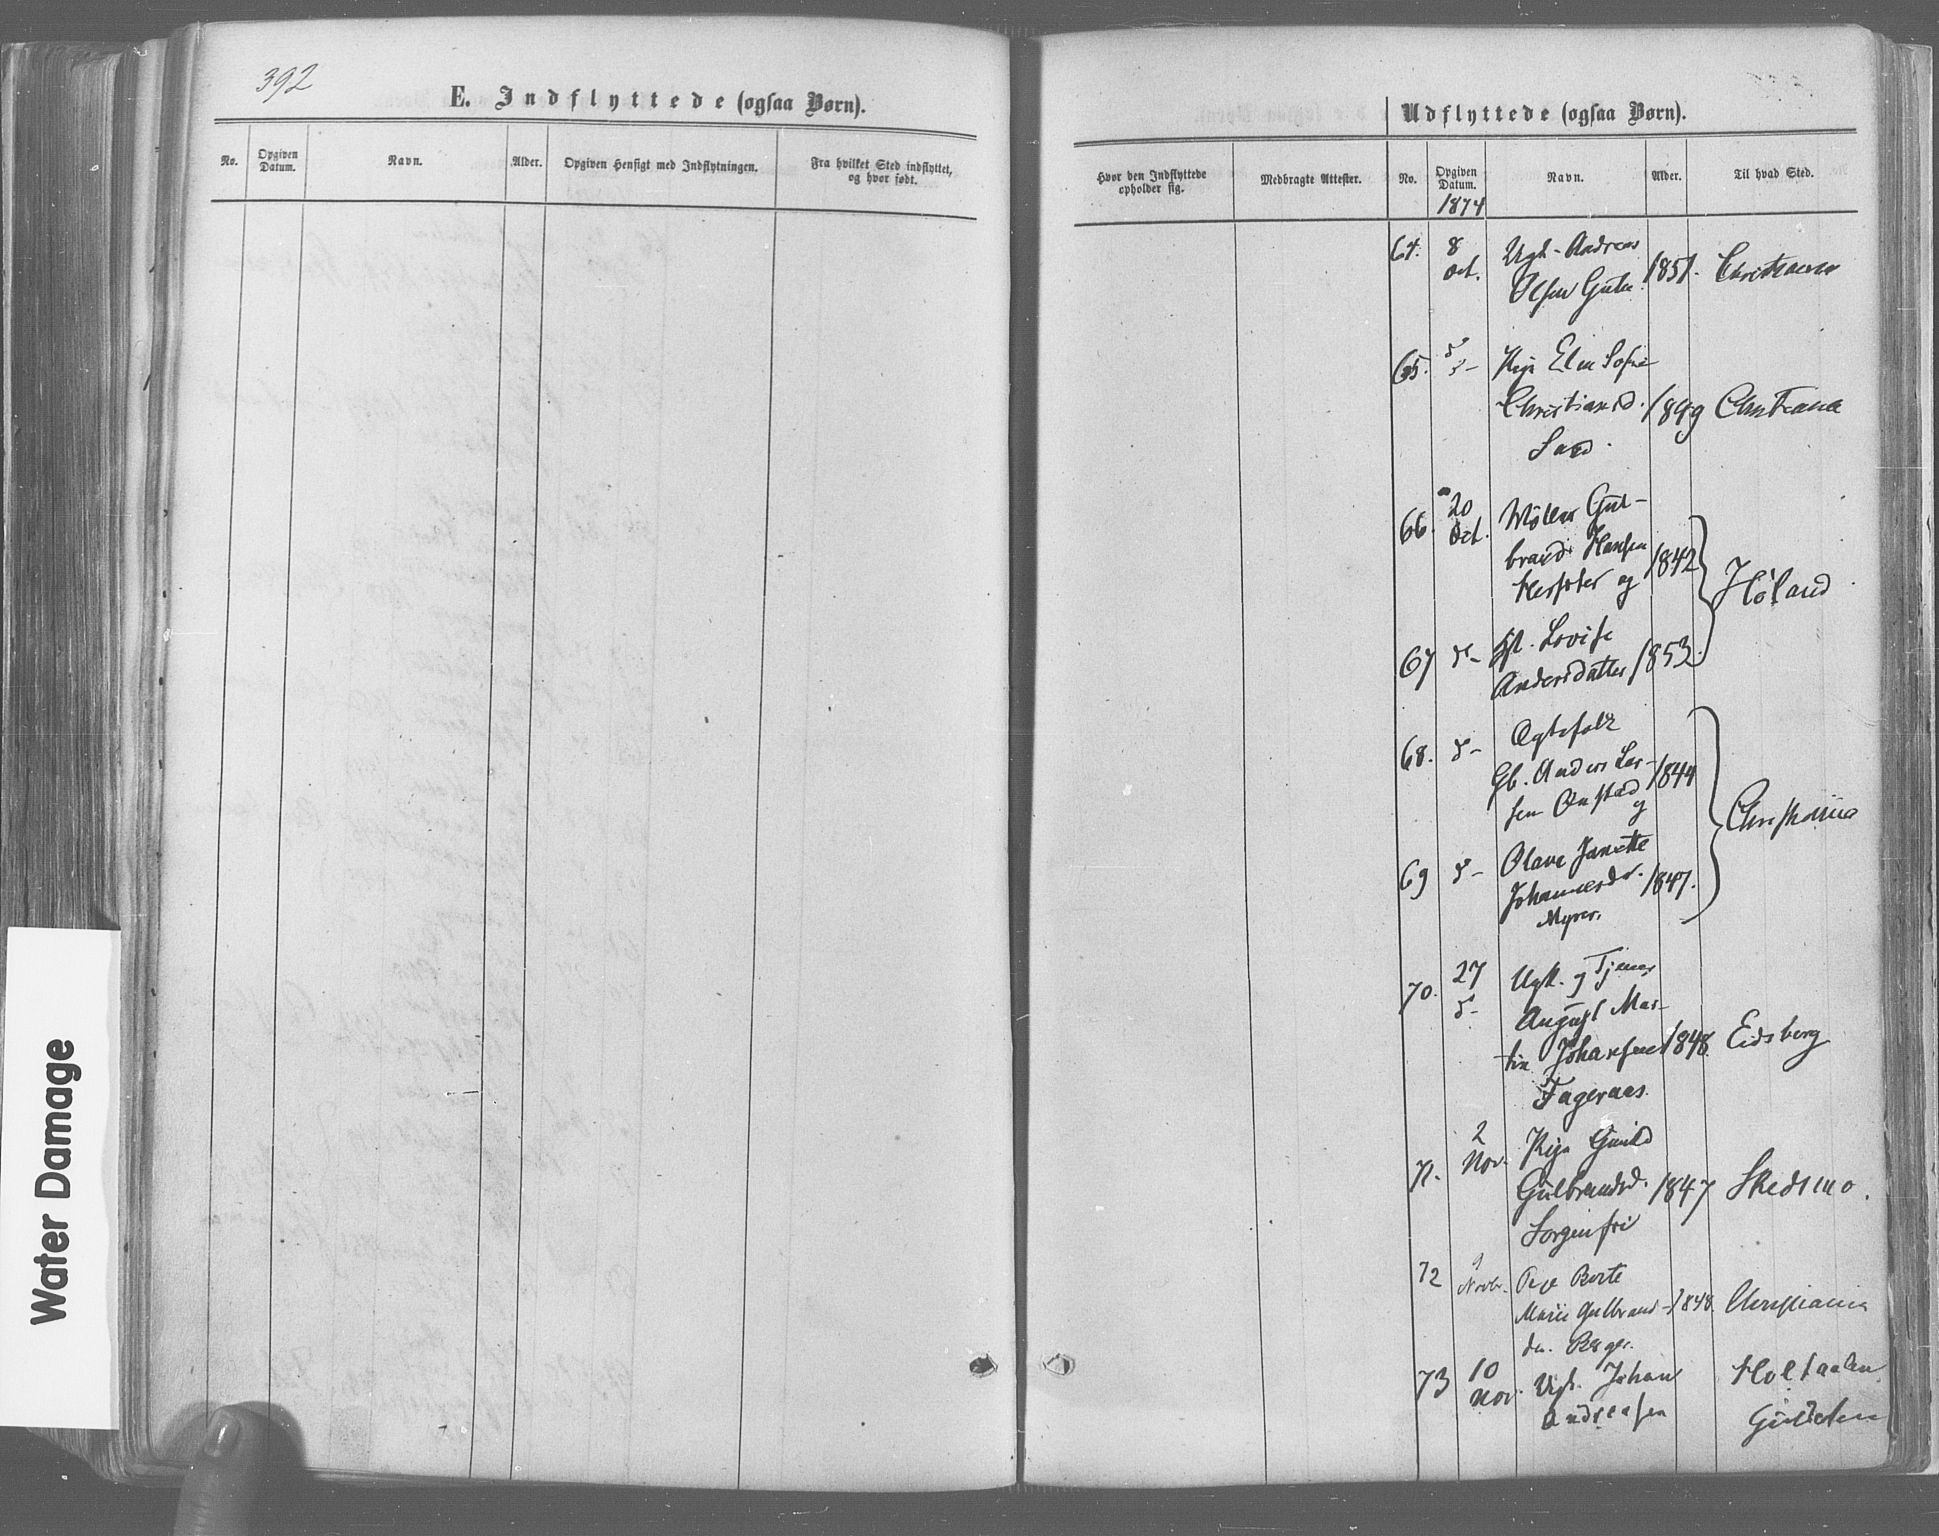 392
E. Indflyttede (ogsaa Børn).
No.
Opgiven Datum.
Navn.
Alder.
Opgiven Hensigt med Indflytningen.
Fra hvilket Sted indflyttet, og hvor født.
Udflyttede (ogsaa Børn).
Hvor den Indflyttede opholder sig.
Medbragte Attester.
No.
Opgiven Datum.
Navn.
Alder.
Til hvad Sted.
1874
64. 8 Oct. Ugk. Andreas
Olsen 1851. Christiania
65. Elen Sofie
Christiansd. 1849 Christiania
66. 20 Oct. Møller Gul-
brand Hansen 1842
og
Høland
67 Lovise
Andersdatter 1853.
68. Ægtefolk
Anders Lar- 1844
sen Onstad
og
Christiania
69 Olave Janette
Johannesdr. 1847.
Myrer.
70. 27 Ugk. og Tjener
August Mar-
tin Johansen 1848 Eidsberg
Fageraas.
71. 2 Nov. Pige
Gulbrandsd. 1847 Skedsmo.
Sorgenfri
72 9 Novbr. Pige Berte
Marie Gulbrand- 1848 Christiania
dr. Berger.
73 10 Nov. Ugk. Johan Holtaalen
Andreasen
Water Damage